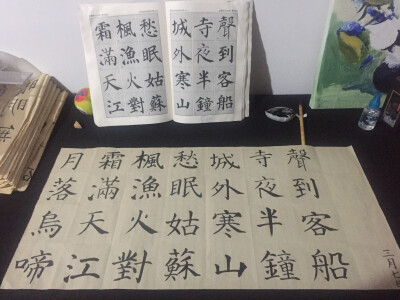 霜滿天江
楓漁火對
愁眠姑蘇
城外寒山
寺夜半鐘
聲到客船
月落烏啼
霜滿天江
楓漁火對
愁眠姑蘇
城外寒山
寺夜半鐘
聲到客船
三月